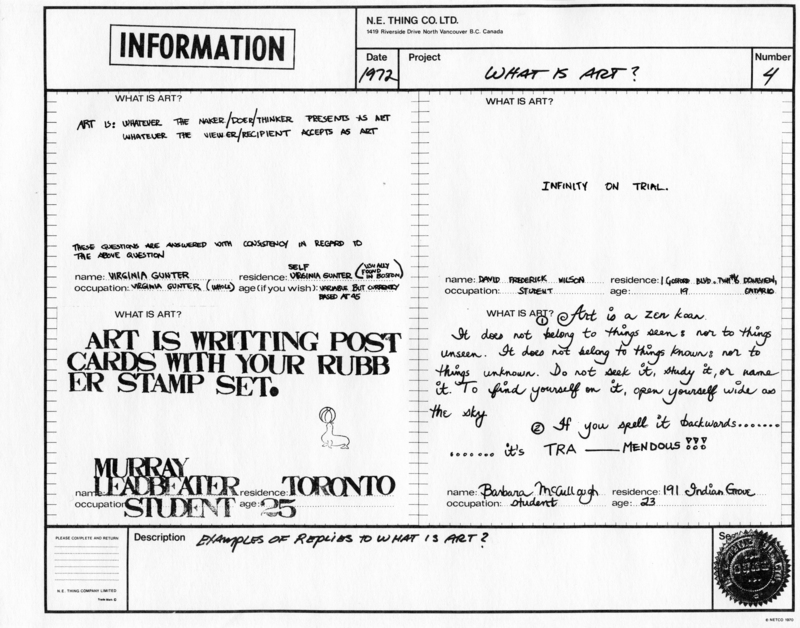 INFORMATION
N.E. THING CO. LTD.
1419 Riverside Drive North Vancouver B.C. Canada
Date
1972
Project
WHAT IS ART?
Number
4
WHAT IS ART?
ART IS: WHATEVER THE MAKER/DOER/THINKER PRESENTS AS ART
WHATEVER THE VIEWER/RECIPIENT ACCEPTS AS ART
THESE QUESTIONS ARE ANSWERED WITH CONSISTENCY IN REGARD TO
THE ABOVE QUESTION
name: VIRGINIA GUNTER
residence: SELF
VIRGINIA GUNTER (USUALLY
FOUND
IN BOSTON)
occupation: VIRGINIA GUNTER (WHOLE)
age (if you wish): VARIABLE BUT CURRENTLY
BASED AT 45
WHAT IS ART?
INFINITY ON TRIAL.
name: DAVID FREDERICK WILSON
residence: 1 GOSFORD BLVD. TWH#6 DOWNSVIEW,
ONTARIO
occupation: STUDENT
age: 19
WHAT IS ART?
ART IS WRITTING POST
CARDS WITH YOUR RUBB
ER STAMP SET.
name: MURRAY
LEADBEATER
residence: TORONTO
occupation: STUDENT
age: 25
WHAT IS ART?
① Art is a zen koan.
It does not belong to things seen: nor to things
unseen. It does not belong to things known: nor to
things unknown. Do not seek it, study it, or name
it. To find yourself on it, open yourself wide as
the sky.
② If you spell it backwards.......
....... it's TRA —— MENDOUS !!!
name: Barbara McCullough
residence: 191 Indian Grove
occupation: student
age: 23
PLEASE COMPLETE AND RETURN
N.E. THING COMPANY LIMITED
Description
EXAMPLES OF REPLIES TO WHAT IS ART?
© NETCO 1970